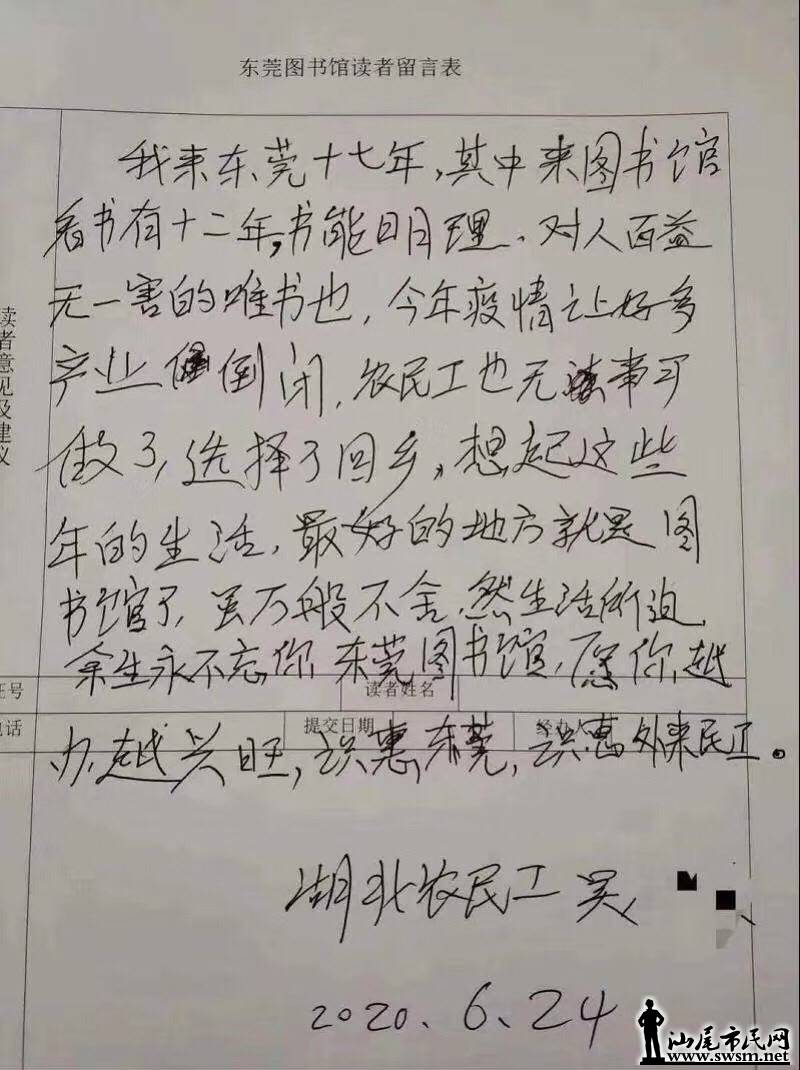 东莞图书馆读者留言表
我来东莞十七年,其中来图书馆
看书有十二年,书能明理、对人百益
无一害的唯书也,今年疫情让好多
产业倒闭,农民工也无事可
做了,选择了回乡,想起这些
年的生活,最好的地方就是图
书馆了,虽万般不舍,然生活所迫,
余生永不忘你,东莞图书馆,愿你越
办越兴旺,识惠东莞,识惠外来民工。
读者意见及建议
证号
读者姓名
电话
提交日期
经办人
湖北农民工 吴
2020、6、24
汕尾市民网
www.swsm.net